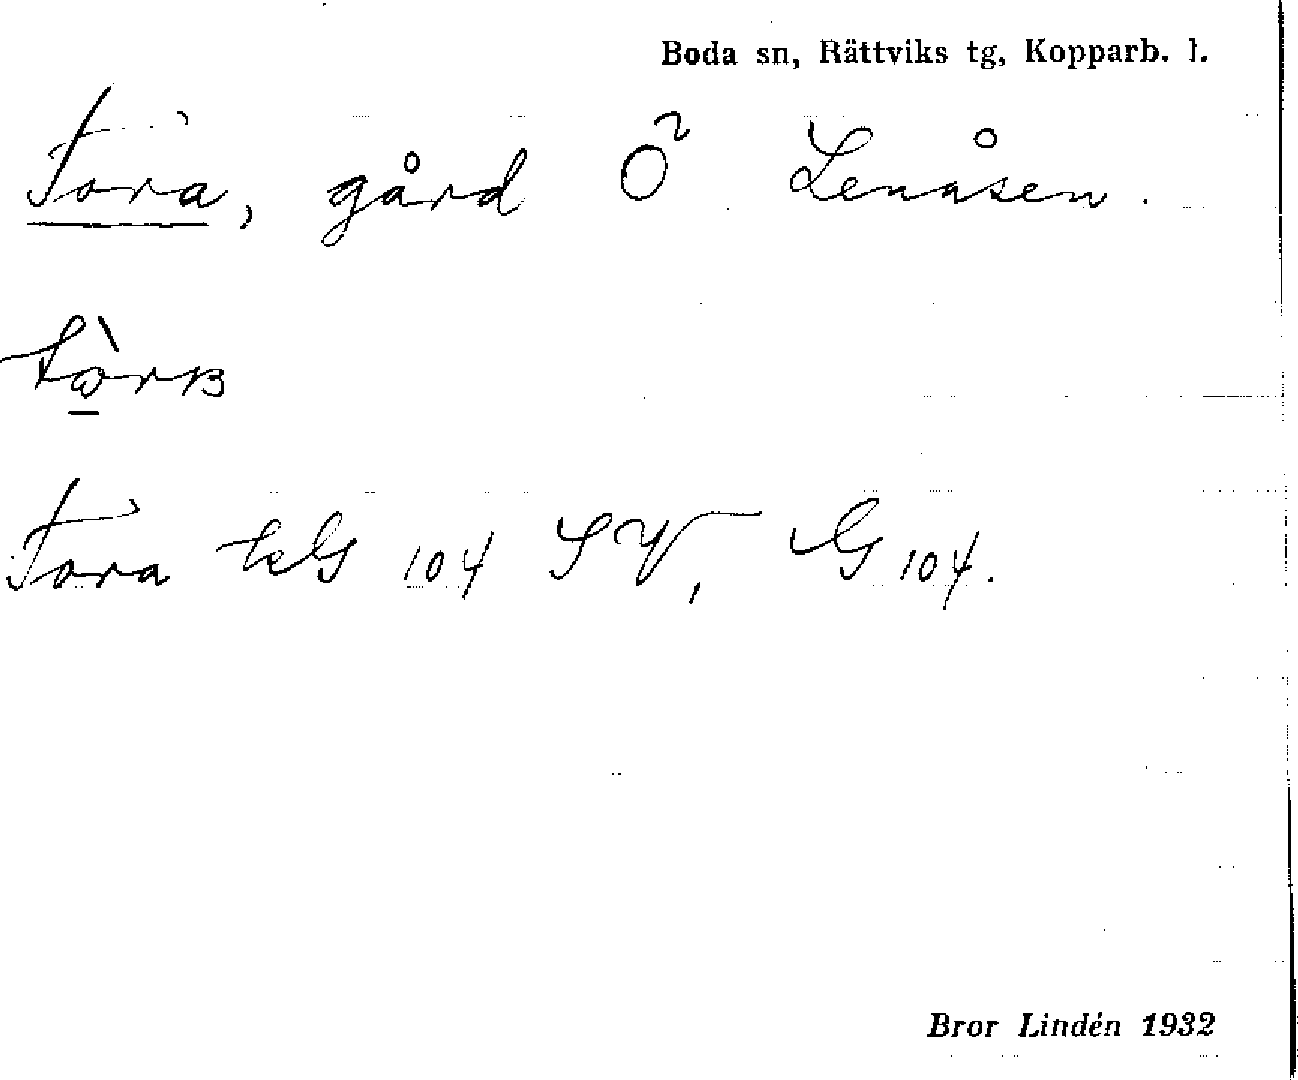 Boda sn, Rättviks tg, Kopparb. l.
Tora, gård Ö Lenåsen.
Tora 104 SV, G 104.
Bror Lindén 1932